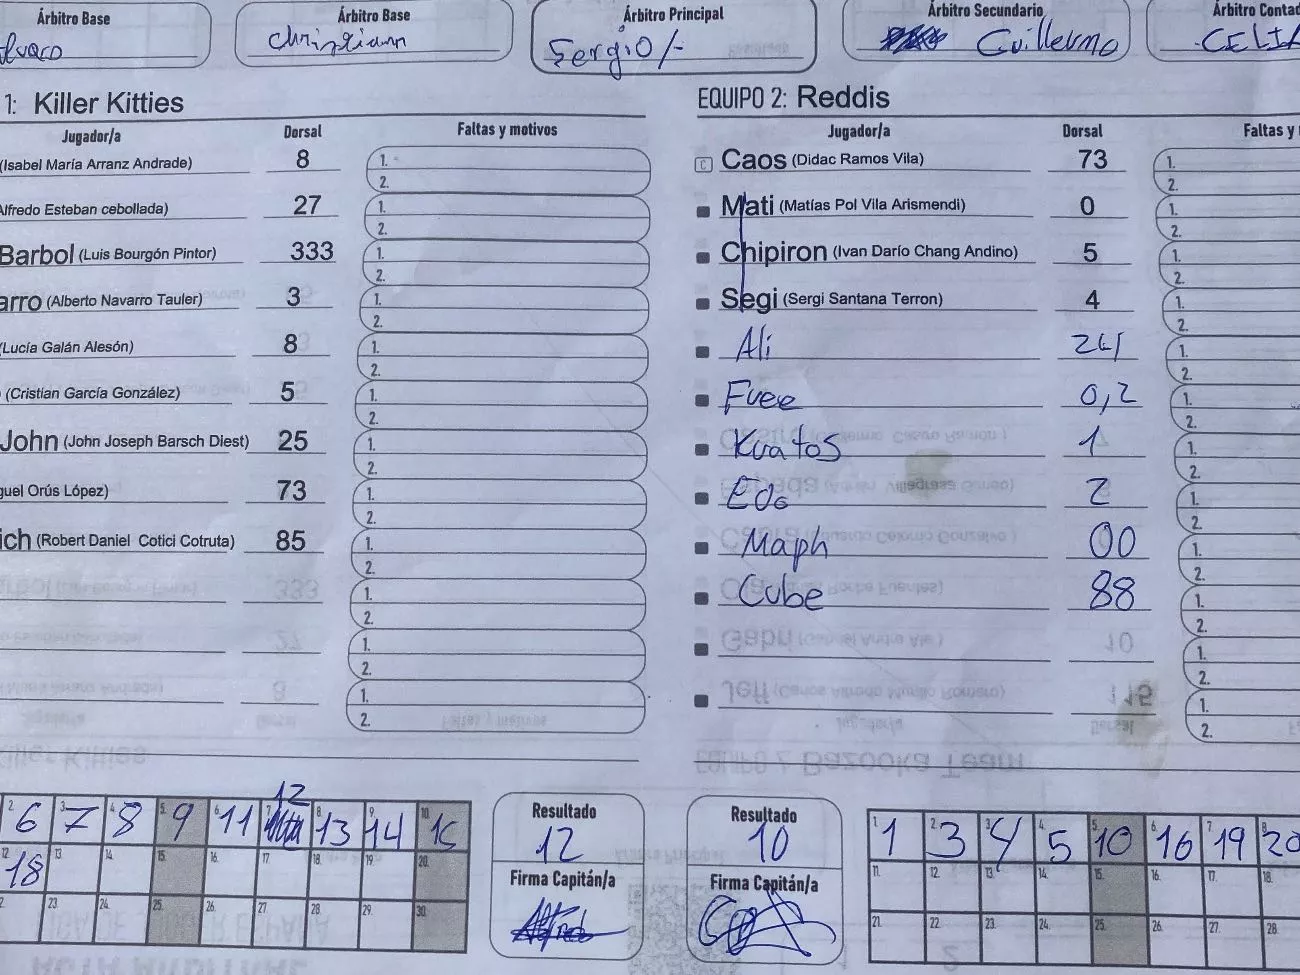 Árbitro Base Árbitro Base Árbitro Principal Árbitro Secundario Árbitro Contad
Christiann Sergio/- Guillermo CELIA
1: Killer Kitties EQUIPO 2: Reddis
Jugador/a Dorsal Faltas y motivos Jugador/a Dorsal Faltas y
(Isabel María Arranz Andrade) 8 1. C Caos (Didac Ramos Vila) 73 1.
2. 2.
Alfredo Esteban cebollada) 27 1. Mati (Matías Pol Vila Arismendi) 0 1.
2. 2.
Barbol (Luis Bourgón Pintor) 333 1. Chipiron (Ivan Darío Chang Andino) 5 1.
2. 2.
arro (Alberto Navarro Tauler) 3 1. Segi (Sergi Santana Terron) 4 1.
2. 2.
(Lucía Galán Alesón) 8 1. Ali 1.
2. 2.
(Cristian García González) 5 1. Fuee 0,2 1.
2. 2.
John (John Joseph Barsch Diest) 25 1. Kratos 1 1.
2. 2.
guel Orús López) 73 1. 2 1.
2. 2.
ich (Robert Daniel Cotici Cotruta) 85 1. Maph 00 1.
2. 2.
1. Cube 88 1.
2. 2.
1. 1.
2. 2.
1. 1.
2. 2.
12
2. 6 3. 7 4. 8 5. 9 6. 11 7. 8. 13 9. 14 10. Resultado Resultado 1. 1 2. 3 3. 4 4. 5 5. 10 6. 16 7. 19 8. 20
12 10
12 18 13. 14. 15. 16. 17. 18. 19. 20. Firma Capitán/a Firma Capitán/a 11. 12. 13. 14. 15. 16. 17. 18.
2 23. 24. 25. 26. 27. 28. 29. 30. Alfredo 21. 22. 23. 24. 25. 26. 27. 28.